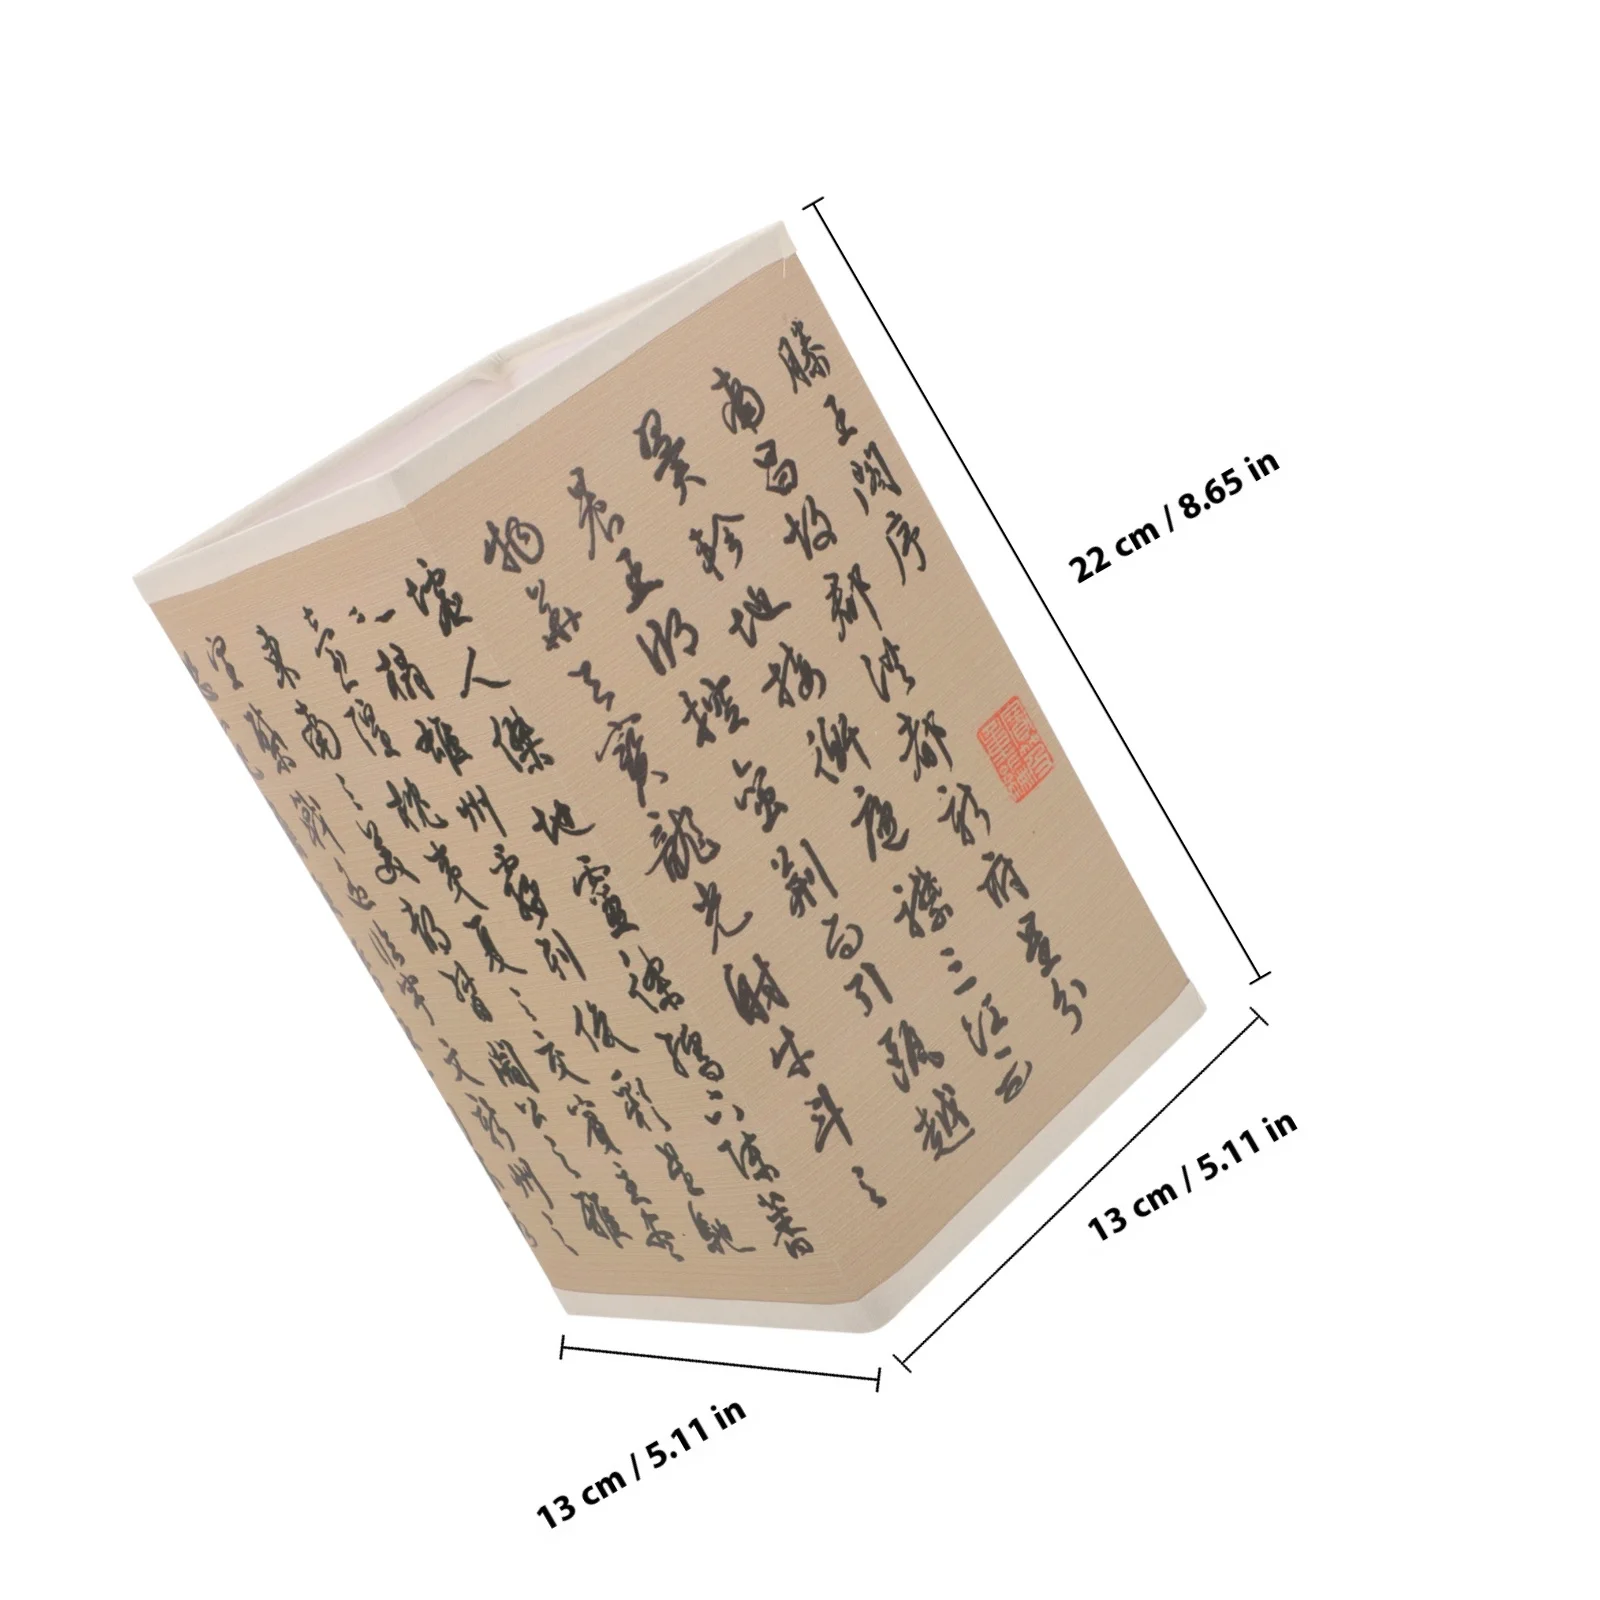 滕王閣序
南昌故郡洪都新府星分
翼軫地接衡廬襟三江而
帶五湖控蠻荊而引甌越
物華天寶龍光射牛斗之
墟人傑地靈徐孺下陳蕃
之榻雄州霧列俊彩星馳
臺隍枕夷夏之交賓主盡
東南之美都督閻公之雅
望棨戟遙臨宇文新州之
22 cm / 8.65 in
13 cm / 5.11 in
13 cm / 5.11 in